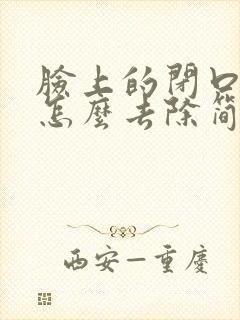 臉上的閉口
怎麼去除簡
西安—重慶